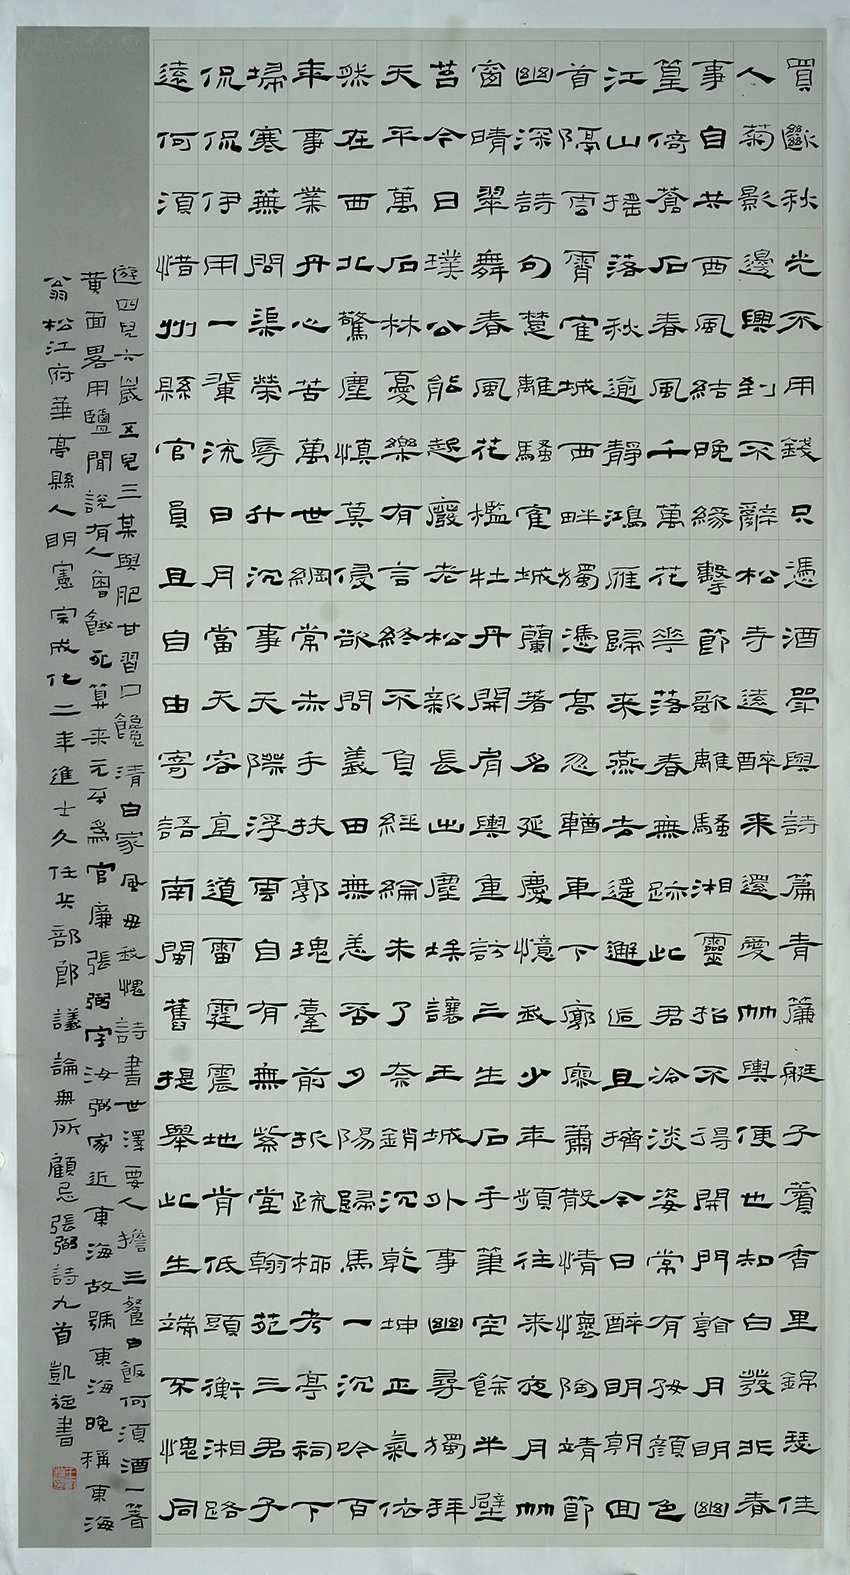 買斷秋光不用錢只憑酒斝與詩篇青簾艇子蘋香里錦瑟佳
人菊影邊興到不辭松寺遠醉來還愛竹輿便也知白發非春
事自共西風結晚緣擊節歌離騷湘靈招不得開門月明幽
篁倚蒼石春風千萬花花落春無跡此君冷淡姿常有好顏色
江山搖落秋逾靜鴻雁歸來燕去遙邂逅且擠今日醉明朝回
首隔雲霄寉城西畔獨憑高忽輶車下廓寥蕭散情懷陶靖節
幽深詩句楚離騷寉城蘭著名延慶憶我少年頻往來夜月竹
窗晴翠舞春風花檻牡丹開肩輿重訪三生石手筆空餘半壁
苔今日璞公能起廢老松新長出塵埃讓王城外事幽尋獨拜
天平萬石林憂樂有言終不負經綸未了奈銷沉乾坤正氣依
然在西北驚塵慎莫侵欲問義田無恙否夕陽歸馬一沉吟百
年事業丹心苦萬世綱常赤手扶郭瑰臺前扒疏柳考亭祠下
掃寒蕪問渠榮辱升沉事天際浮雲自有無紫堂翰苑三君子
侃侃伊用一輩流日月當天容直道雷霆震地肯低頭衡湘路
遠何須惜州縣官員且自由寄語南閩舊提舉此生端不愧同
遊四兒六歲五兒三某與肥甘習口饞清白家風毋我愧詩書世澤要人擔三餐白飯何須酒一箸
黃面畧用鹽聞說有人曾餓死算來元不為官廉張弼字汝弼家近東海故號東海晚稱東海
翁松江府華亭縣人明憲宗成化二年進士久任兵部郎議論無所顧忌張弼詩九首凱旋書